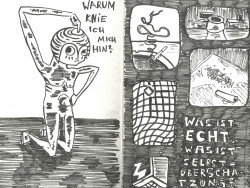 WARUM
KNIE
ICH
MICH
HIN?
WAS IST
ECHT.
WAS IST
SELBST-
ÜBERSCHÄ-
TZUNG?